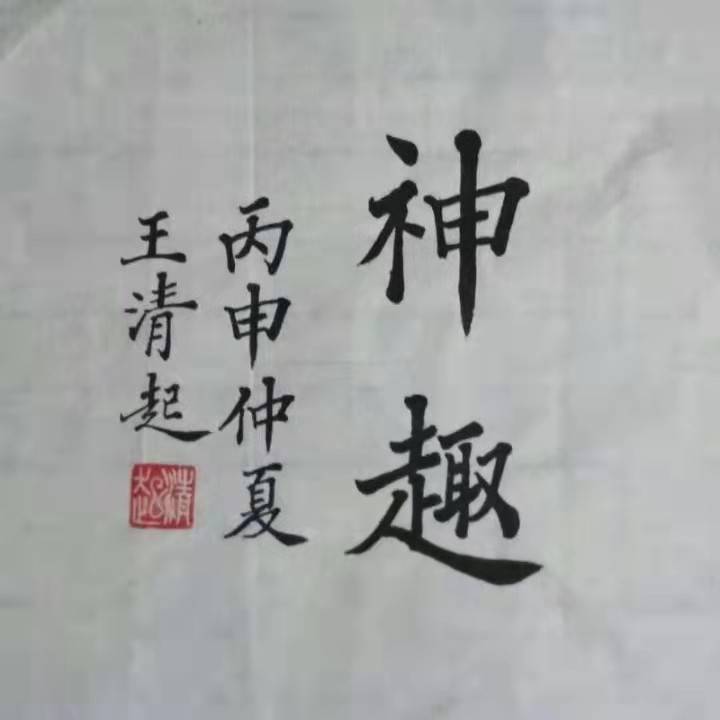 神趣
丙申仲夏
王清起
清起